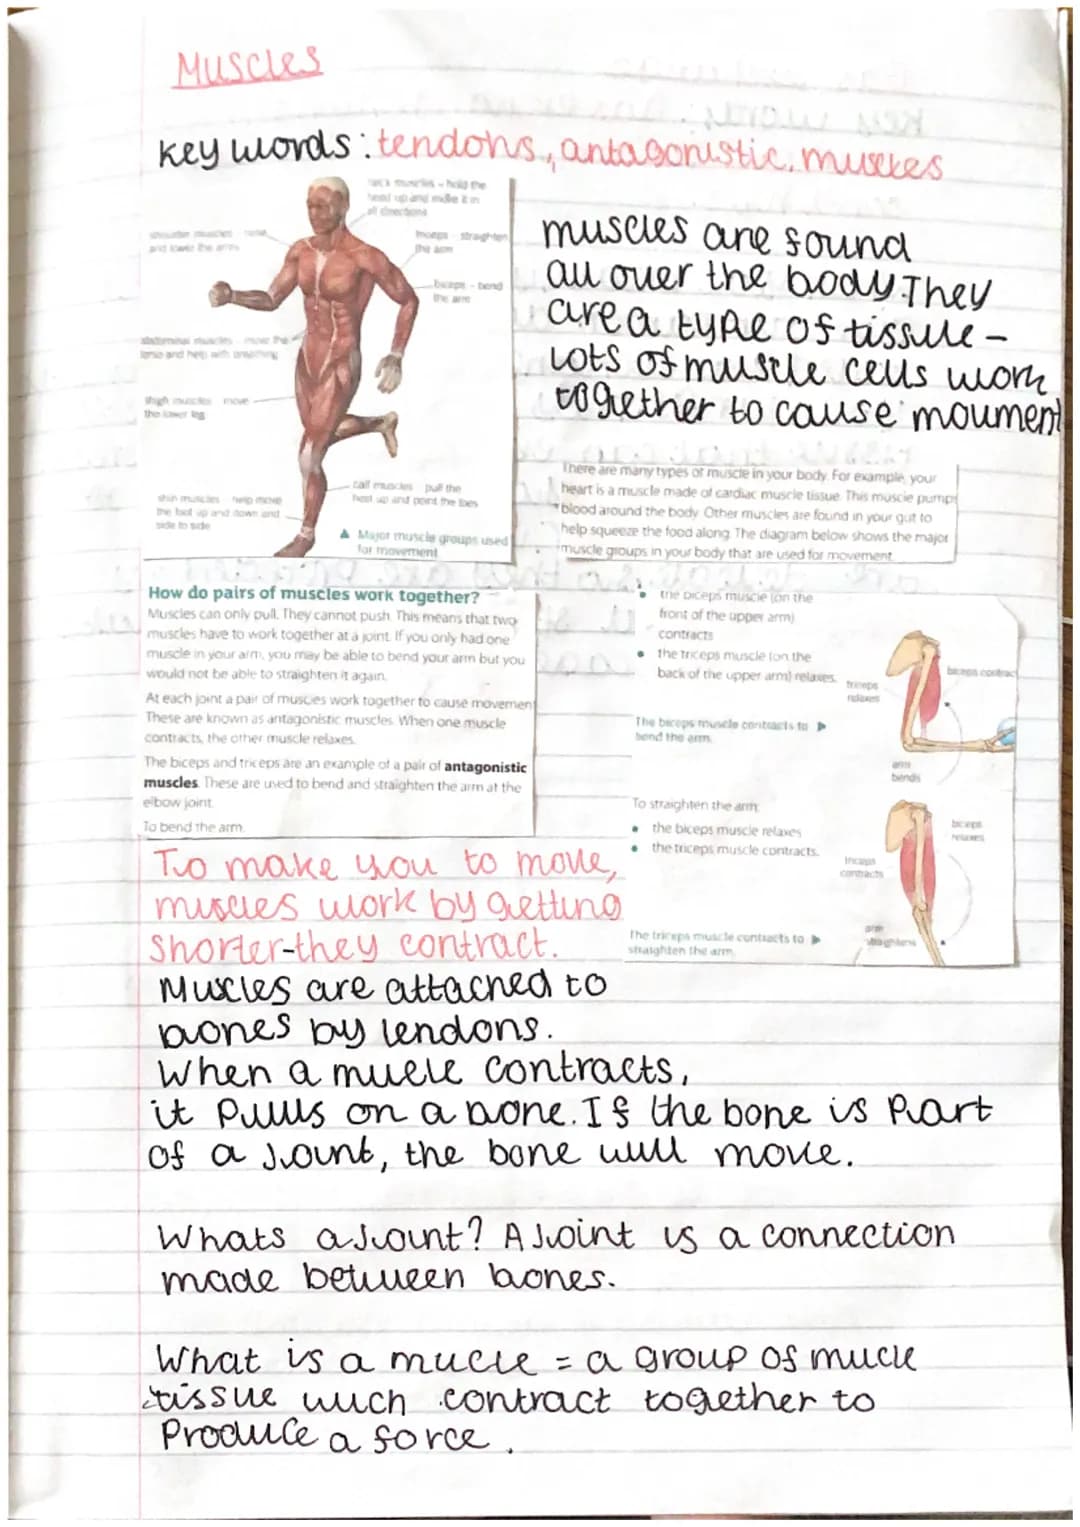 Muscles
key words: tendons, antagonistic, muscles
neck muscles - hold the
head up and move it in
all directions
shoulder muscles - raise
and lower the arms
triceps - straighten
the arm
biceps - bend
the arm
abdominal muscles - move the
torso and help with breathing
thigh muscles move
the lower leg
calf muscles pull the
heel up and point the toes
shin muscles help move
the foot up and down and
side to side
▲ Major muscle groups used
for movement
muscles are found
all over the body. They
are a type of tissue -
Lots of muscle cells work
together to cause moument
There are many types of muscle in your body. For example, your
heart is a muscle made of cardiac muscle tissue. This muscle pumps
blood around the body. Other muscles are found in your gut to
help squeeze the food along. The diagram below shows the major
muscle groups in your body that are used for movement.
How do pairs of muscles work together?
Muscles can only pull. They cannot push. This means that two
muscles have to work together at a joint. If you only had one
muscle in your arm, you may be able to bend your arm but you
would not be able to straighten it again.
At each joint a pair of muscles work together to cause movement
These are known as antagonistic muscles. When one muscle
contracts, the other muscle relaxes.
The biceps and triceps are an example of a pair of antagonistic
muscles. These are used to bend and straighten the arm at the
elbow joint.
To bend the arm:
• the biceps muscle (on the
front of the upper arm)
contracts
• the triceps muscle (on the
back of the upper arm) relaxes.
The biceps muscle contracts to ▶
bend the arm.
triceps
relaxes
biceps contrac
arm
bends
To straighten the arm:
• the biceps muscle relaxes
• the triceps muscle contracts.
The triceps muscle contracts to ▶
straighten the arm.
biceps
relaxes
triceps
contracts
arm
straightens
To make you to move,
muscles work by getting
shorter-they contract.
Muscles are attached to
bones by tendons.
When a mucle contracts,
it pulls on a bone. If the bone is part
of a joint, the bone will move.
Whats a joint? A joint is a connection
made between bones.
What is a mucle = a group of mucle
tissue wich contract together to
Produce a force.